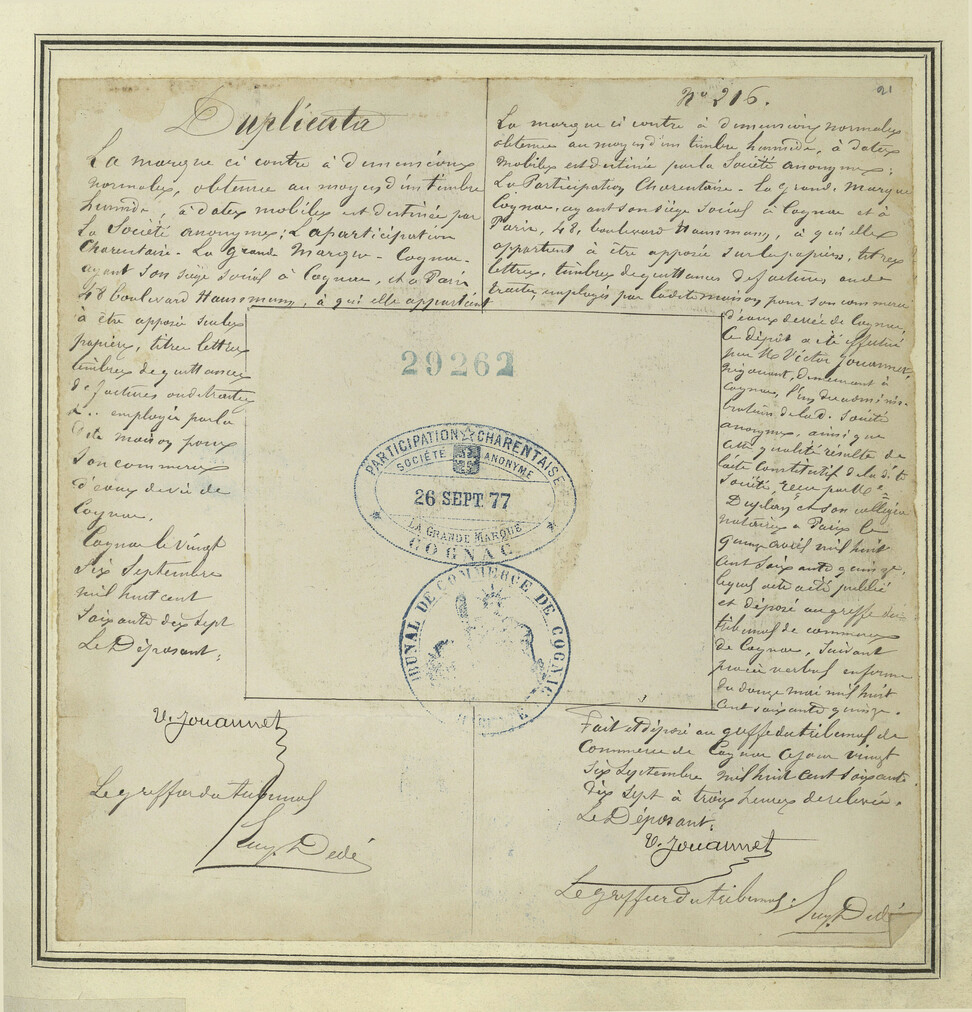 Duplicata
La marque ci contre à dimensions
normales, obtenue au moyen d'un timbre
humide, à dates mobiles est destinée par
La Société anonyme; La participation
Charentaise - La Grande Marque - Cognac -
ayant son siège social à Cognac, et à Paris
48 boulevard Haussmann, à qui elle appartient
à être apposée sur les
papiers, titres lettres
timbres de quittances
de factures ou de traites
employée par la
dite maison pour
son commerce
d'eaux de vie de
Cognac.
Cognac le vingt
six Septembre
mil huit cent
soixante dix sept
Le Déposant;
V. Jouannet
Le greffier du tribunal
Dedé
No 216.
21
La marque ci contre à dimensions normales
obtenue au moyen d'un timbre humide, à dates
mobiles est destinée par la Société anonyme;
La Participation Charentaise - La Grande Marque
Cognac, ayant son siège social à Cognac et à
Paris, 48, boulevard Haussmann, à qui elle
appartient à être apposée sur les papiers, titres
lettres, timbres de quittances de factures, ou de
traites, employés par la dite maison pour son commerce
d'eaux de vie de Cognac,
Ce dépôt a été effectué
par Mr Victor Jouannet,
Négociant, demeurant à
Cognac, l'un des adminis-
trateurs de la d. Société
anonyme, ainsi que
cette qualité résulte de
l'acte constitutif de la dite
Société, reçu par Me
Duplan et son collègue
notaires à Paris le
quinze avril mil huit
cent soixante quinze,
lequel acte a été publié
et déposé au greffe du
tribunal de commerce
de Cognac, suivant
procès verbal en forme
du douze mai mil huit
cent soixante quinze.
Fait et déposé au greffe du tribunal de
Commerce de Cognac ce jour vingt
six Septembre mil huit cent soixante
dix sept à trois heures de relevée.
Le Déposant;
V. Jouannet
Le greffier du tribunal;
Dedé
29262
PARTICIPATION CHARENTAISE
SOCIÉTÉ ANONYME
26 SEPT 77
LA GRANDE MARQUE
COGNAC
TRIBUNAL DE COMMERCE DE COGNAC